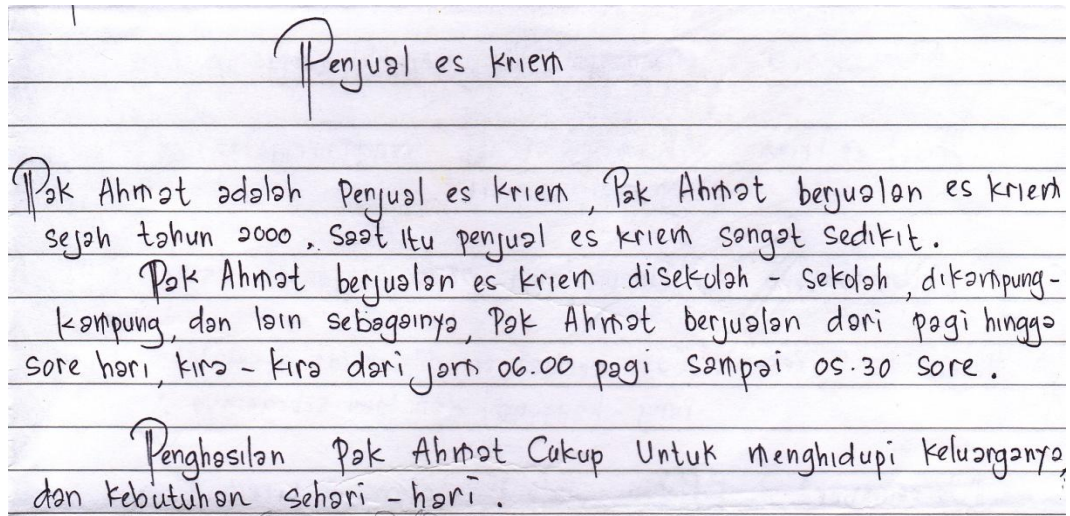 Penjual es kriem
Pak Ahmat adalah Penjual es kriem, Pak Ahmat berjualan es kriem
sejah tahun 2000, Saat itu penjual es kriem sangat sedikit.
Pak Ahmat berjualan es kriem disekolah - sekolah, dikampung-
kampung, dan lain sebagainya, Pak Ahmat berjualan dari pagi hingga
sore hari, kira - kira dari jam 06.00 pagi sampai 05.30 sore.
Penghasilan Pak Ahmat Cukup Untuk menghidupi keluarganya,
dan kebutuhan sehari - hari.